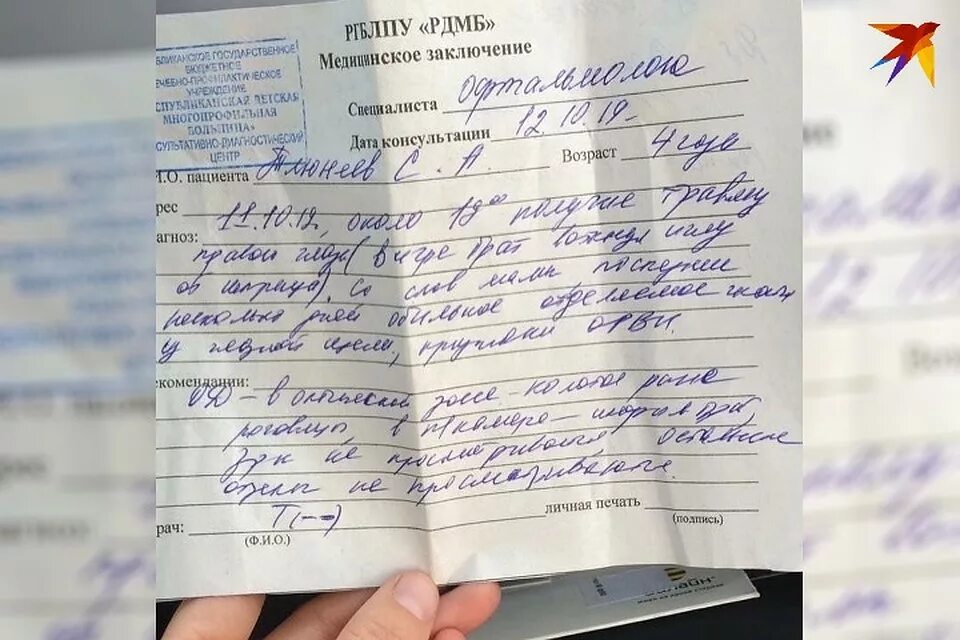 РГБЛПУ «РДМБ»
Медицинское заключение
БЛИКАНСКОЕ ГОСУДАРСТВЕННОЕ
БЮДЖЕТНОЕ
ЕЧЕБНО-ПРОФИЛАКТИЧЕСКОЕ
УЧРЕЖДЕНИЕ
СПУБЛИКАНСКАЯ ДЕТСКАЯ
МНОГОПРОФИЛЬНАЯ
БОЛЬНИЦА»
СУЛЬТАТИВНО-ДИАГНОСТИЧЕСКИЙ
ЦЕНТР
Специалиста офтальмолога
Дата консультации 12.10.19
.О. пациента Тлюняев С. А. Возраст 4 года
рес 11.10.19, около получил травму
агноз: правого глаза (в игре брат иглу
от шприца). Со слов мамы последние
несколько дней обильное отделяемое
у глазной щели, ОРВИ.
екомендации: OD – в оптической зоне – колотая рана
роговицы, в п/камере –
зрк не просматривается остальные
отделы не просматриваются.
рач: Т(--) личная печать
(Ф.И.О.) (подпись)